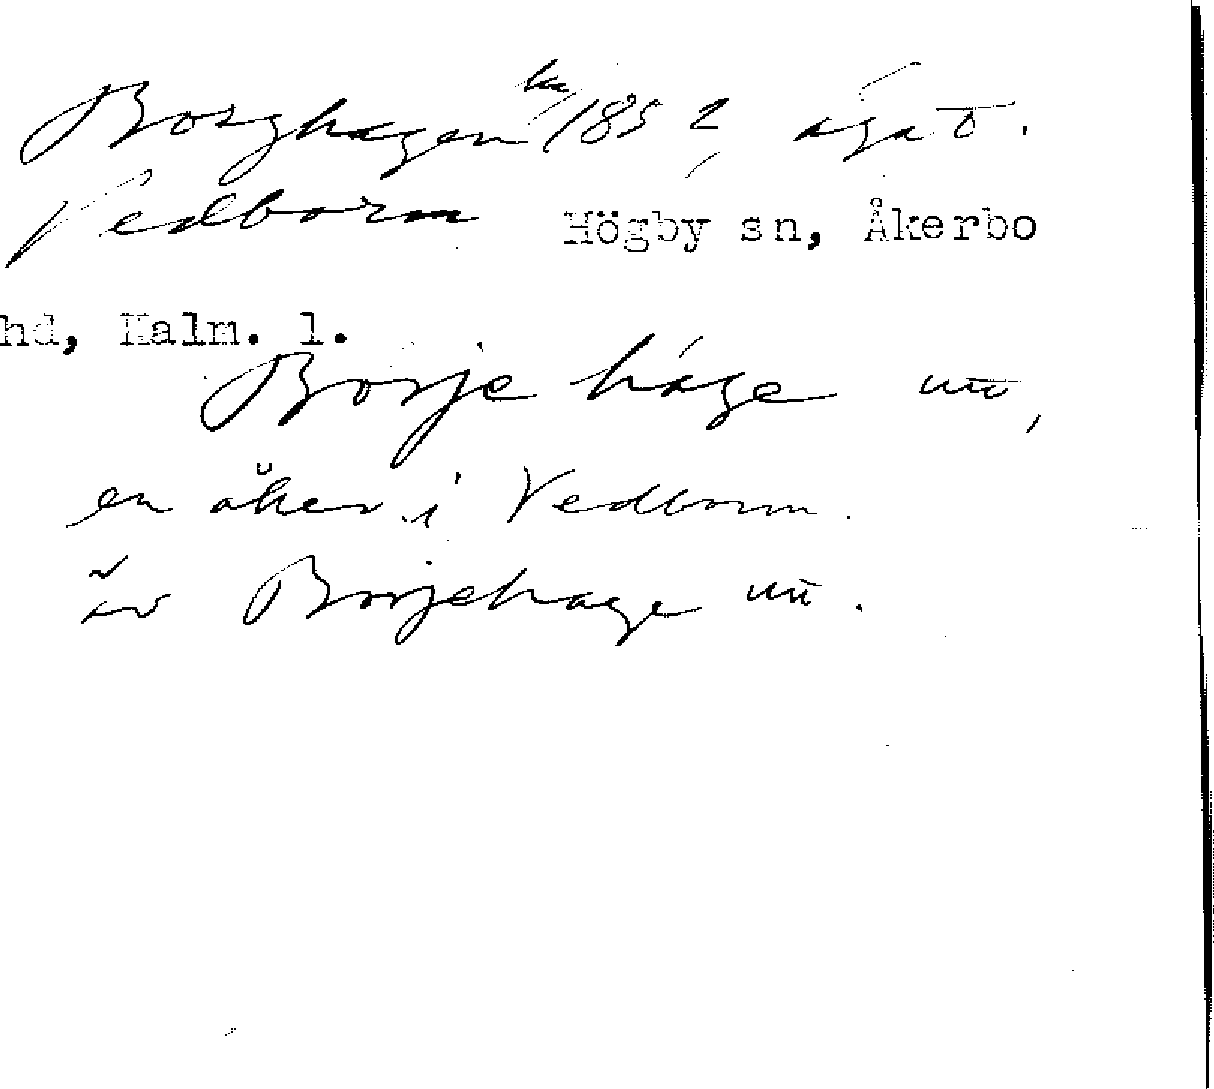 Borghagen 1852, ägat.
Vedborm Högby sn, Åkerbo
hd, Kalm. l.
Borje háge
en åker i Vedborm.
äv Borjehage